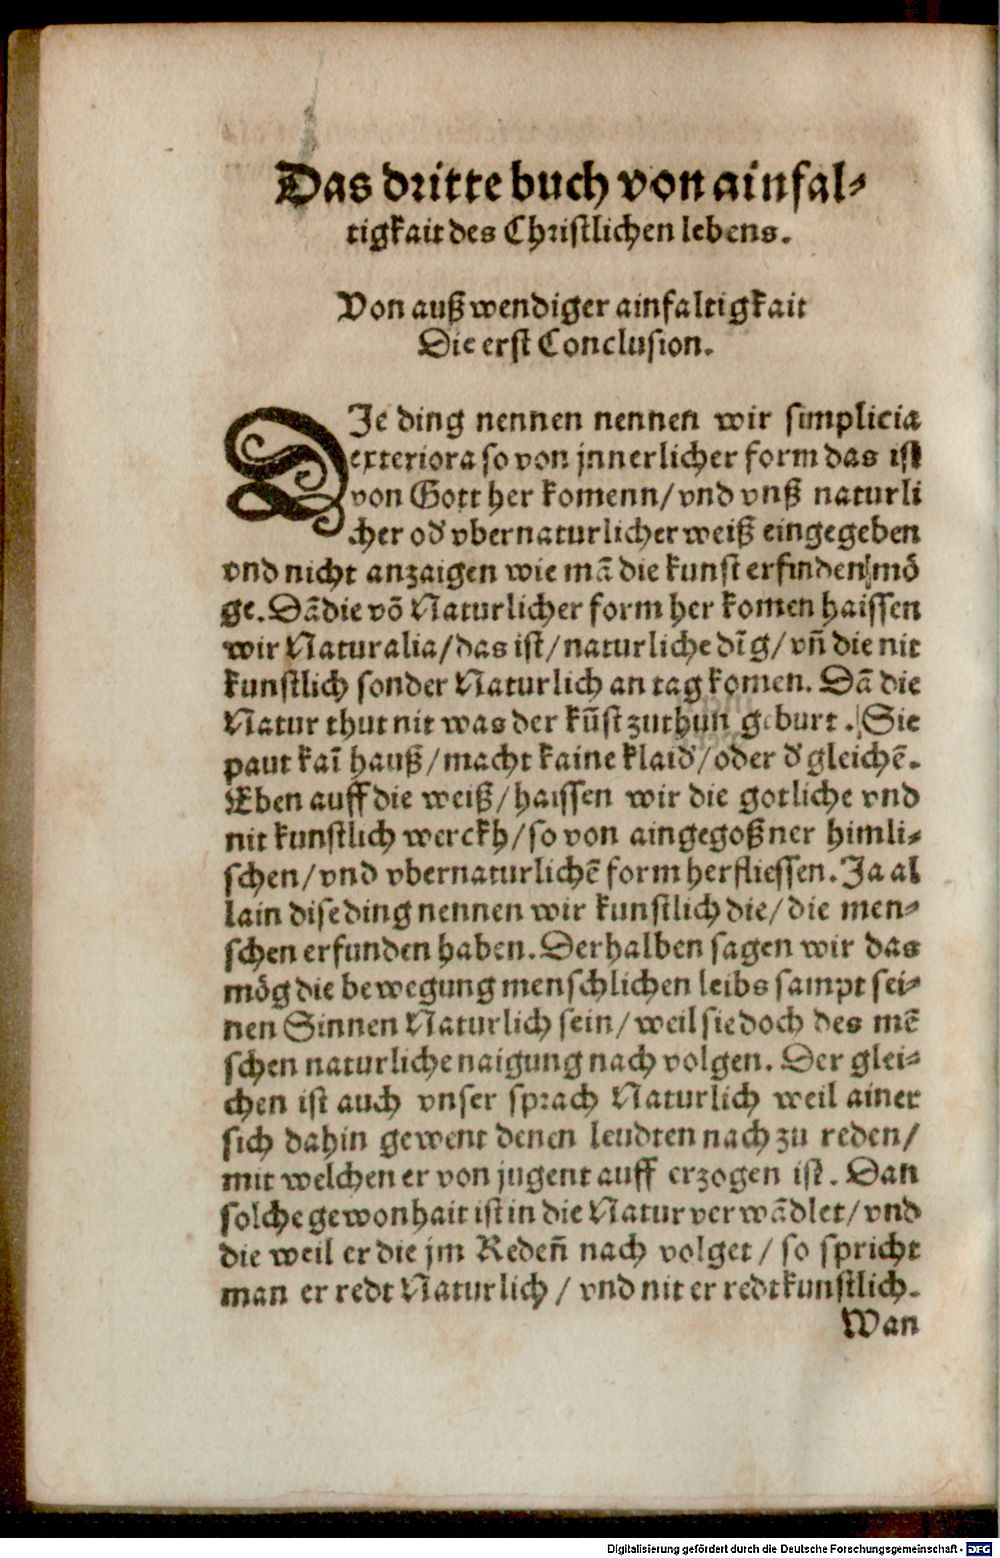 Das dritte buch von ainfal⸗
tigkait des Christlichen lebens.
Von außwendiger ainfaltigkait
Die erst Conclusion.
DJe ding nennen nennen wir simplicia
exteriora so von jnnerlicher form das ist
von Gott her komenn/vnd vnß naturli
cher od' vbernaturlicher weiß eingegeben
vnd nicht anzaigen wie mā die kunst erfinden mö
ge. Dā die võ Naturlicher form her komen haissen
wir Naturalia/das ist/naturliche dīg/vn̄ die nit
kunstlich sonder Naturlich an tag komen. Dā die
Natur thut nit was der kūst zuthun geburt. Sie
paut kaī hauß/macht kaine klaid'/oder d' gleichē.
Eben auff die weiß/haissen wir die gotliche vnd
nit kunstlich werckh/so von aingegoßner himli⸗
schen/vnd vbernaturlichē form herfliessen. Ja al
lain dise ding nennen wir kunstlich die/die men⸗
schen erfunden haben. Derhalben sagen wir das
mög die bewegung menschlichen leibs sampt sei⸗
nen Sinnen Naturlich sein/weil sie doch des mē
schen naturliche naigung nach volgen. Der glei⸗
chen ist auch vnser sprach Naturlich weil ainer
sich dahin gewent denen leudten nach zu reden/
mit welchen er von jugent auff erzogen ist. Dan
solche gewonhait ist in die Natur verwādlet/vnd
die weil er die jm Reden̄ nach volget/so spricht
man er redt Naturlich/vnd nit er redt kunstlich.
Wan
Digitalisierung gefördert durch die Deutsche Forschungsgemeinschaft - DFG